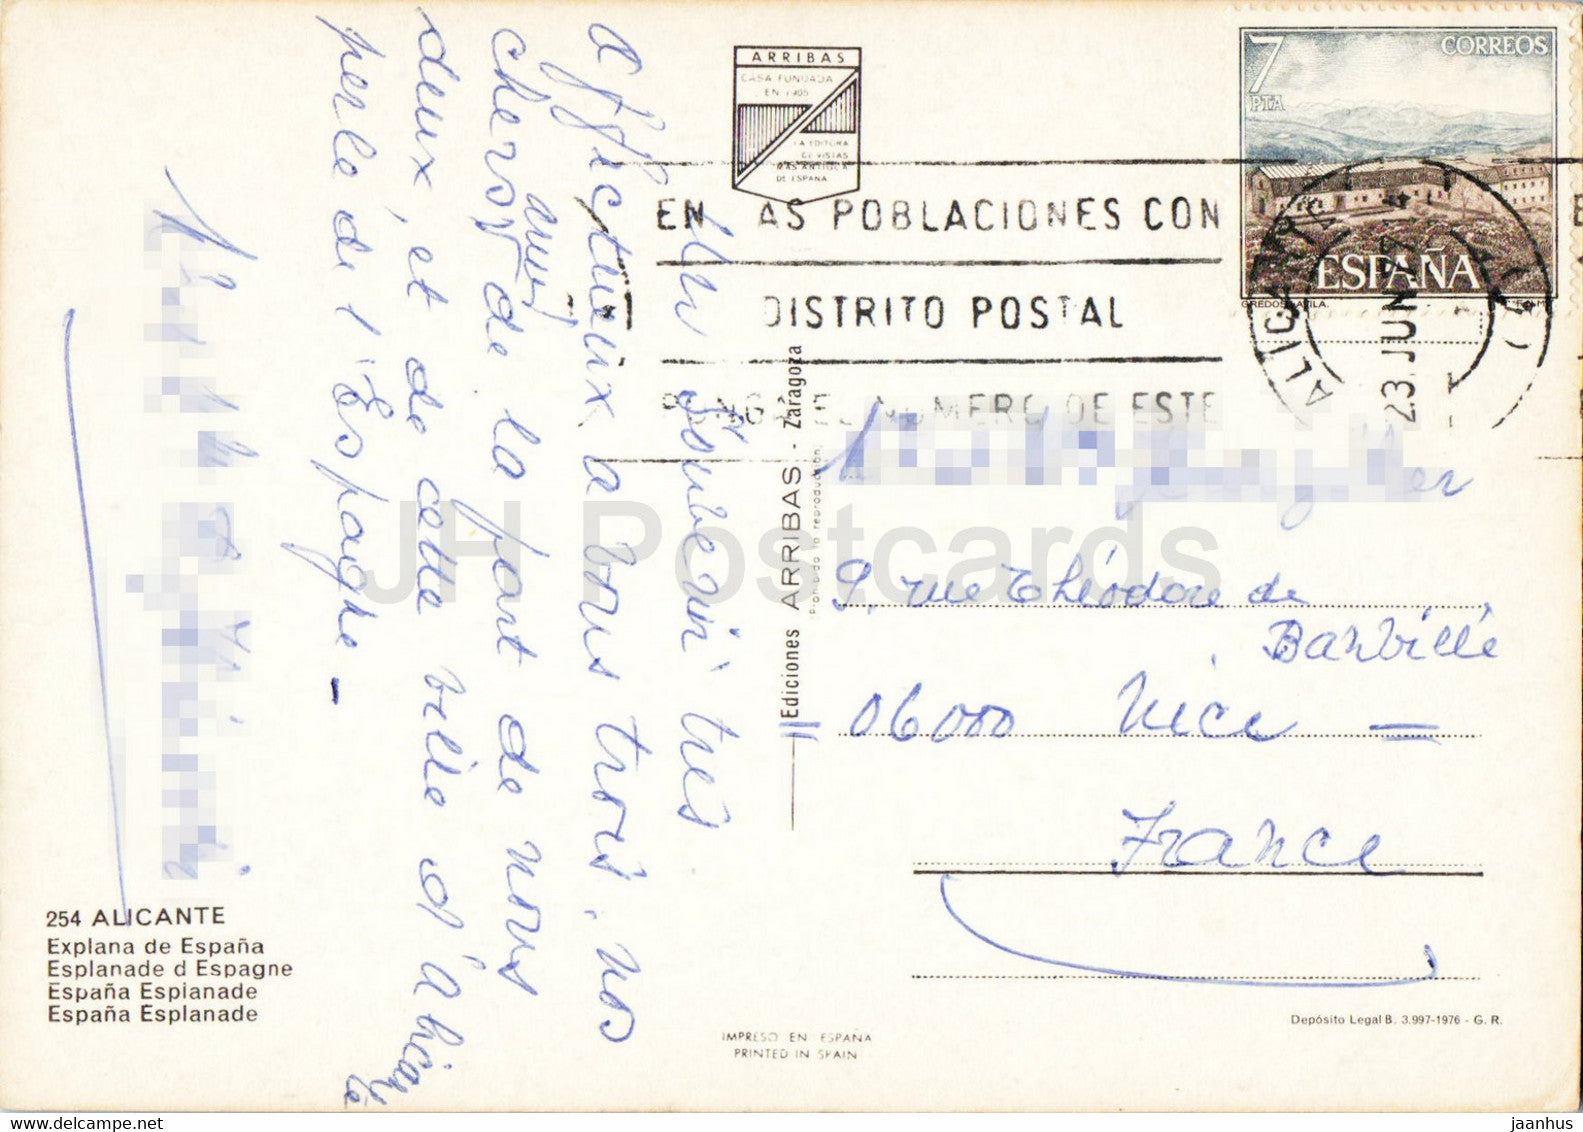 ARRIBAS
CASA FUNDADA
EN 1905
LA EDITORA
DE VISTAS
MAS ANTIGUA
DE ESPAÑA
7
PTA
CORREOS
ESPAÑA
GREDOS-AVILA.
F.N.M.T.
EN LAS POBLACIONES CON
DISTRITO POSTAL
PONGA EL NUMERO DE ESTE
ALICANTE
23 JUN
Un souvenir très
affectueux à vous trois, nos
chers amis
de la part de nous
deux, et de cette ville d'Alicante
perle de l'Espagne –
Ediciones ARRIBAS - Zaragoza
Prohibida la reproducción.
9, rue Théodore de
Banville
06000 Nice —
France
254 ALICANTE
Explana de España
Esplanade d Espagne
España Esplanade
España Esplanade
IMPRESO EN ESPAÑA
PRINTED IN SPAIN
Depósito Legal B. 3.997-1976 - G. R.
JH Postcards
www.delcampe.net
jaanhus